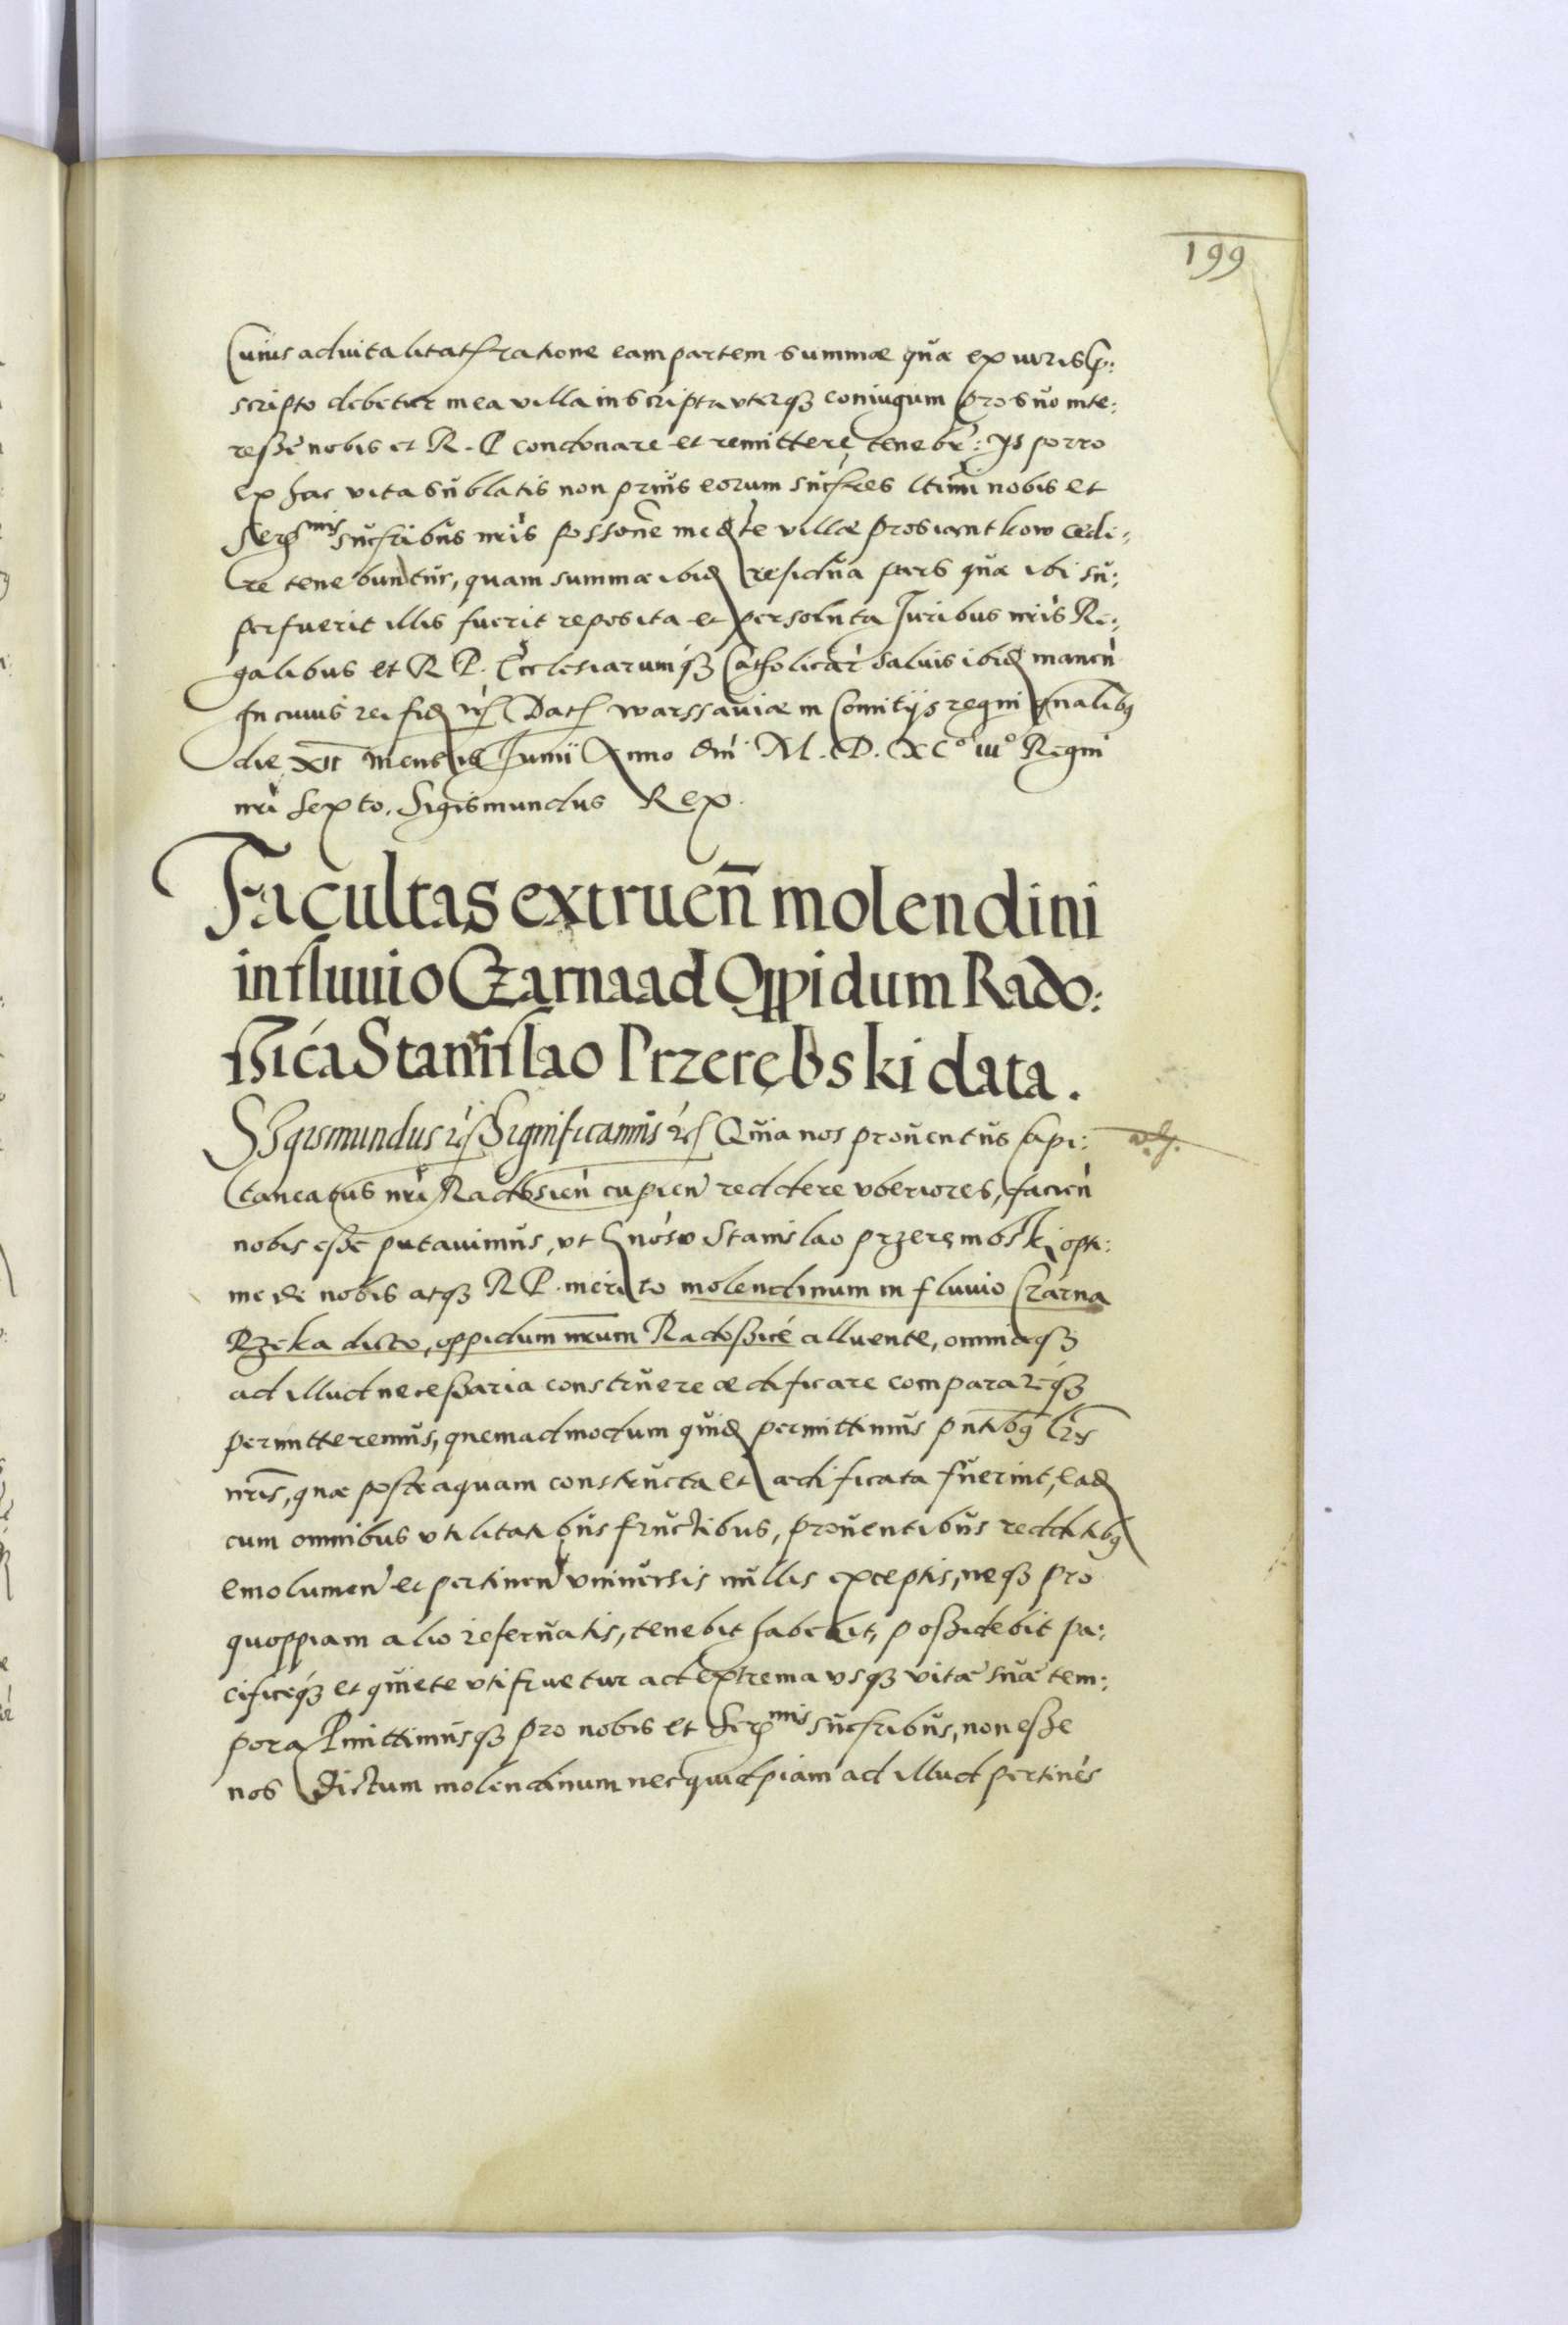 199
Cuius aduitalitatis ratione eam partem summæ quæ ex iuris p:
scripto debetur in ea villa inscripta vterq3 coniugum pro suo inte:
resse nobis et R. P condonare et remittere tenebr: Is porro
ex hac vita sublatis non prius eorum suc̃res ltimi nobis et
Ser mis suc̃ribus nr̃is possone med te villæ prosiantkow cede:
re tenebuntur, quam summæ ibid residua pars quæ ibi su:
perfuerit illis fuerit reposita et persoluta Juribus nr̃is Re:
galibus et R P. Ecclesiarumq3 Catholicar saluis ibid manen
In cuius rei fid Dat Warssauiæ in Comitijs regni gnalib9
die XII mensis Junii Anno dni M. D. XC° iii° Regni
nri Sexto. Sigismundus Rex.
Facultas extruen̄ molendini
in fluuio Czarna ad Oppidum Rado:
ssicé Stanislao Przerębski data.
Sigismundus Significamus Quia nos prouentus Capi:
taneatus nri Radossien cupien reddere vberiores, facien
nobis esse putauimus, vt Gnoso Stanislao przerembski opti:
me de nobis atq3 R P. merito molendinum in fluuio Czarna
Rzeka dicto, oppidum nrum Radossicé alluente, omniaq3
ad illud necessaria construere ædificare comparareq3
permitteremus, quemadmodum quid permittimus pntib9 lris
nris, quæ posteaquam constructa et ædificata fuerint, ead
cum omnibus vtilitatibus fructibus, prouentibus redditib9
emolumen et pertinen vniuersis nullis exceptis, neq3 pro
quoppiam alio reseruatis, tenebit habebit, possidebit pa:
cificeq3 et quiete vti fruetur ad extrema vsq3 vitæ suæ tem:
pora Pmittimusq3 pro nobis et Ser mis suc̃ribus, non esse
nos dictum molendinum nec quidpiam ad illud pertinés